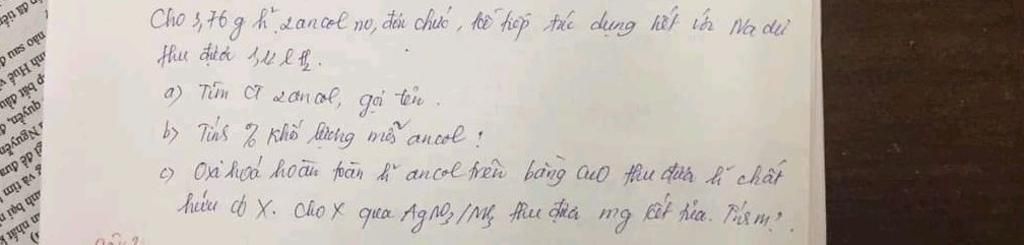 Cho 3,76 g h² 2 ancol no, đơn chức, kế tiếp tác dụng hết với Na dư
thu được 1,12 l H₂.
a) Tìm CT 2 ancol, gọi tên.
b) Tính % khối lượng mỗi ancol?
c) Oxi hoá hoàn toàn h² ancol trên bằng CuO thu được h² chất
hữu cơ X. Cho X qua AgNO₃/NH₃ thu được mg kết tủa. Tính m?